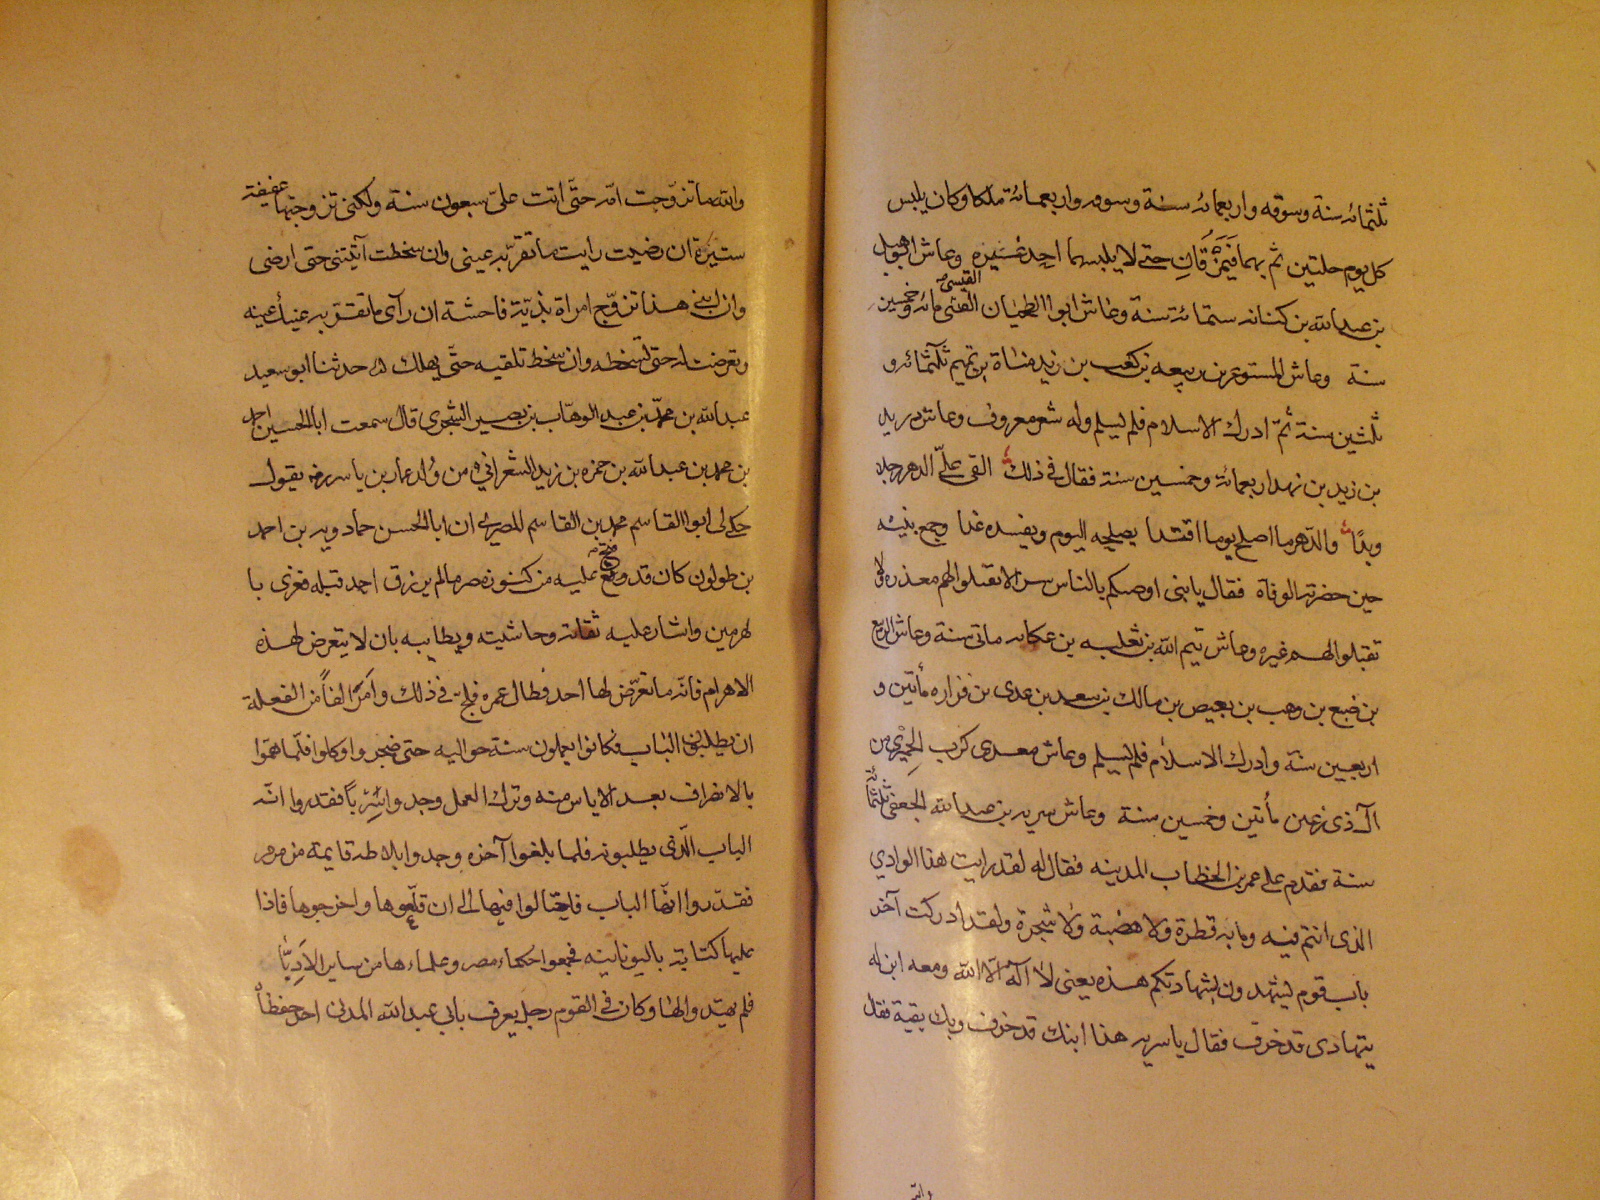 ثلثمائه سنة وسوقه واربعمائه سنة وسوقه واربعمائة ملكا وكان يلبس
كل يوم حلتين ثم بهما فَيُمَزَّقَانِ حتے لا يلبسهما احد غيره وعاش ابو هبل
بن عبد الله بن كنانه ستمائة سنة وعاش ابوا الطمحان القينى مائه وخمسين
القيسى
سنة وعاش المستوعر بن ربيعه بن كعب بن زيد مناة بن تميم ثلثمائه و
ثلثين سنة ثمّ ادرك الاسلام فلم يسلم وله شعر معروف وعاش دريد
بن زيد بن نهد اربعمائة وخمسين سنة فقال فى ذلك القى علىّ الدهر رجلا
ويدًا والدّهر ما اصلح يوما افسدا يصلحه اليوم ويفسده غدا وجمع بنيه
حين حضرته الوفاة فقال يا بنى اوصيكم بالناس شرا لا تقبلوا لهم معذره ولا
تقيلوا لهم عثره وعاش تيم الله بن ثعلبه بن عكابه مائى سنة وعاش الربيع
بن ضبع بن وهب بن بغيض بن مالك بن سعد بن عدى بن فزاره مأتين و
اربعين سنة وادرك الاسلام فلم يسلم وعاش معدى كرب الحِمْيَرى من
آل ذى رعين مأتين وخمسين سنة وعاش سريه بن عبد الله الجعفى ثلثمائة
سنة فقدم على عمر بن الخطاب المدينه فقال له لقد رايت هذا الوادي
الذى انتم فيه وما به قطرة ولا هضبة ولا شجرة ولقد ادركت آخر
باب قوم يشهدون بشهادتكم هذه يعنى لا اله الا الله ومعه ابن له
يتهادى قد خرف فقال يا سريه هذا ابنك قد خرف وبك بقية فقال
والله
والله ما تزوّجت امّه حتّى اتت علىّ سبعون سنة ولكنى تزوجتها عفيفة
ستيرة ان رضيت رايت ما تقرّبه عينى وان سخطت آتيتنى حتى ارضى
وان ابنى هذا تزوّج امراة بذيّة فاحشة ان رآى ما تقرّبه عينه
وتعرضت له حتى تسخطه وان سخط تلقيه حتّى يهلك حدثنا ابو سعيد
عبد الله بن محمّد بن عبد الوهّاب بن نصير الشجرى قال سمعت ابا الحسين احمد
بن محمد بن عبد الله بن حمزه بن زيد الشعراني من ولد عمار بن ياسر رضه يقول
حكى لى ابوا القاسم محمد بن القاسم المصرى ان ابا الحسن حمادويه بن احمد
بن طولون كان قد وقع عليه من كنوزه مصر ما لم يرزق احد قبله فغزى با
فتح
لهرمين واشار عليه ثقاته وحاشيته وبطايبه بان لا يتعرض لهذه
الاهرام فانّه ما تعرّض لها احد فطال عمره فلجّ فى ذلك وامر الفاً من الفعلة
ان يطلبون الباب فكانوا يعملون سنة حواليه حتى ضجروا وكلوا فلما همّوا
بالانصراف بعد الاياس منه وترك العمل وجدوا سَرَباً فقدروا انّه
الباب الّذى يطلبونه فلما بلغوا آخره وجدوا بلاطه قايمة من مرمر
فقدّروا انّها الباب فاحتالوا فيها الى ان قلّعوها واخرجوها فاذا
عليها كتابة باليونانيه فجمعوا حكماء مصر وعلماءها من ساير الاديان
فلم يهتدوا لها وكان فى القوم رجل يعرف بابى عبد الله المدنى احد حفظاً